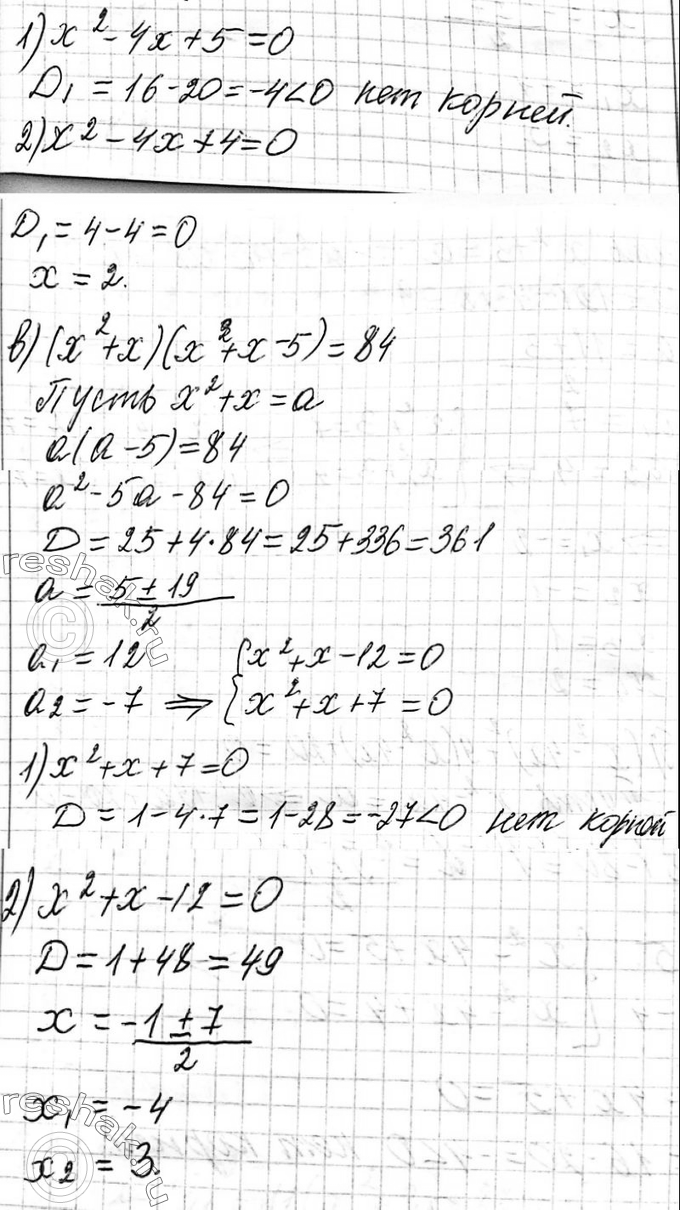 1) x² - 4x + 5 = 0
D₁ = 16 - 20 = -4 < 0 нет корней.
2) x² - 4x + 4 = 0
D₁ = 4 - 4 = 0
x = 2.
в) (x² + x)(x² + x - 5) = 84
Пусть x² + x = a
a(a - 5) = 84
a² - 5a - 84 = 0
D = 25 + 4·84 = 25 + 336 = 361
a = (5 ± 19)/2
a₁ = 12 { x² + x - 12 = 0
a₂ = -7 ⇒ { x² + x + 7 = 0
1) x² + x + 7 = 0
D = 1 - 4·7 = 1 - 28 = -27 < 0 нет корней
2) x² + x - 12 = 0
D = 1 + 48 = 49
x = (-1 ± 7)/2
x₁ = -4
x₂ = 3.
reshak.ru
reshak.ru